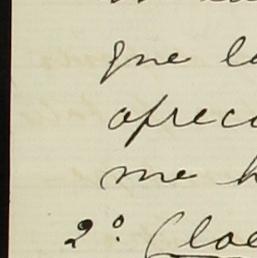 que l
ofrec
me h
2º Cloe